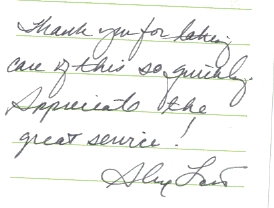 Thank you for taking
care of this so quickly.
Appreciate the
great service!